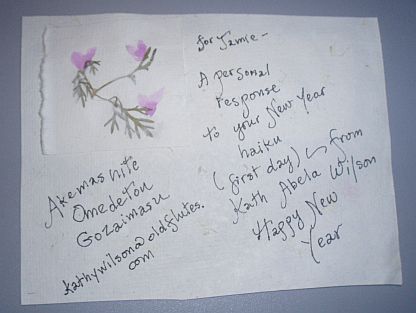 for Jamie -
A personal
response
to your New Year
haiku
(first day) from
Kath Abela Wilson
Happy New
Year
Akemashite
Omedetou
Gozaimasu
kathywilson@oldflutes.
com